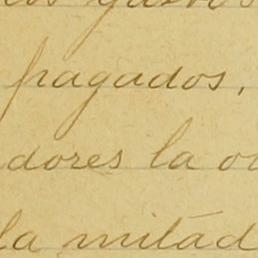 los gastos
pagados,
dores la
la mitad